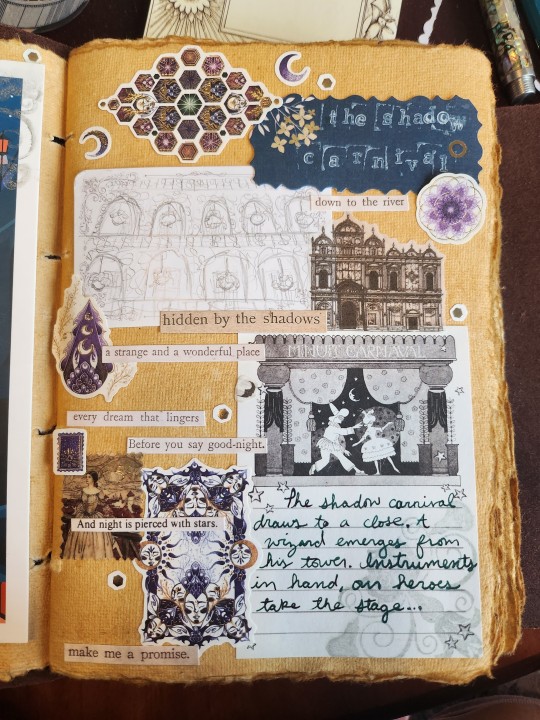 the shadow
carnival
down to the river
hidden by the shadows
a strange and a wonderful place
CARNAVAL
every dream that lingers
Before you say good-night.
And night is pierced with stars.
The shadow carnival
draws to a close. A
wizard emerges from
his tower. Instruments
in hand, our heroes
take the stage...
make me a promise.